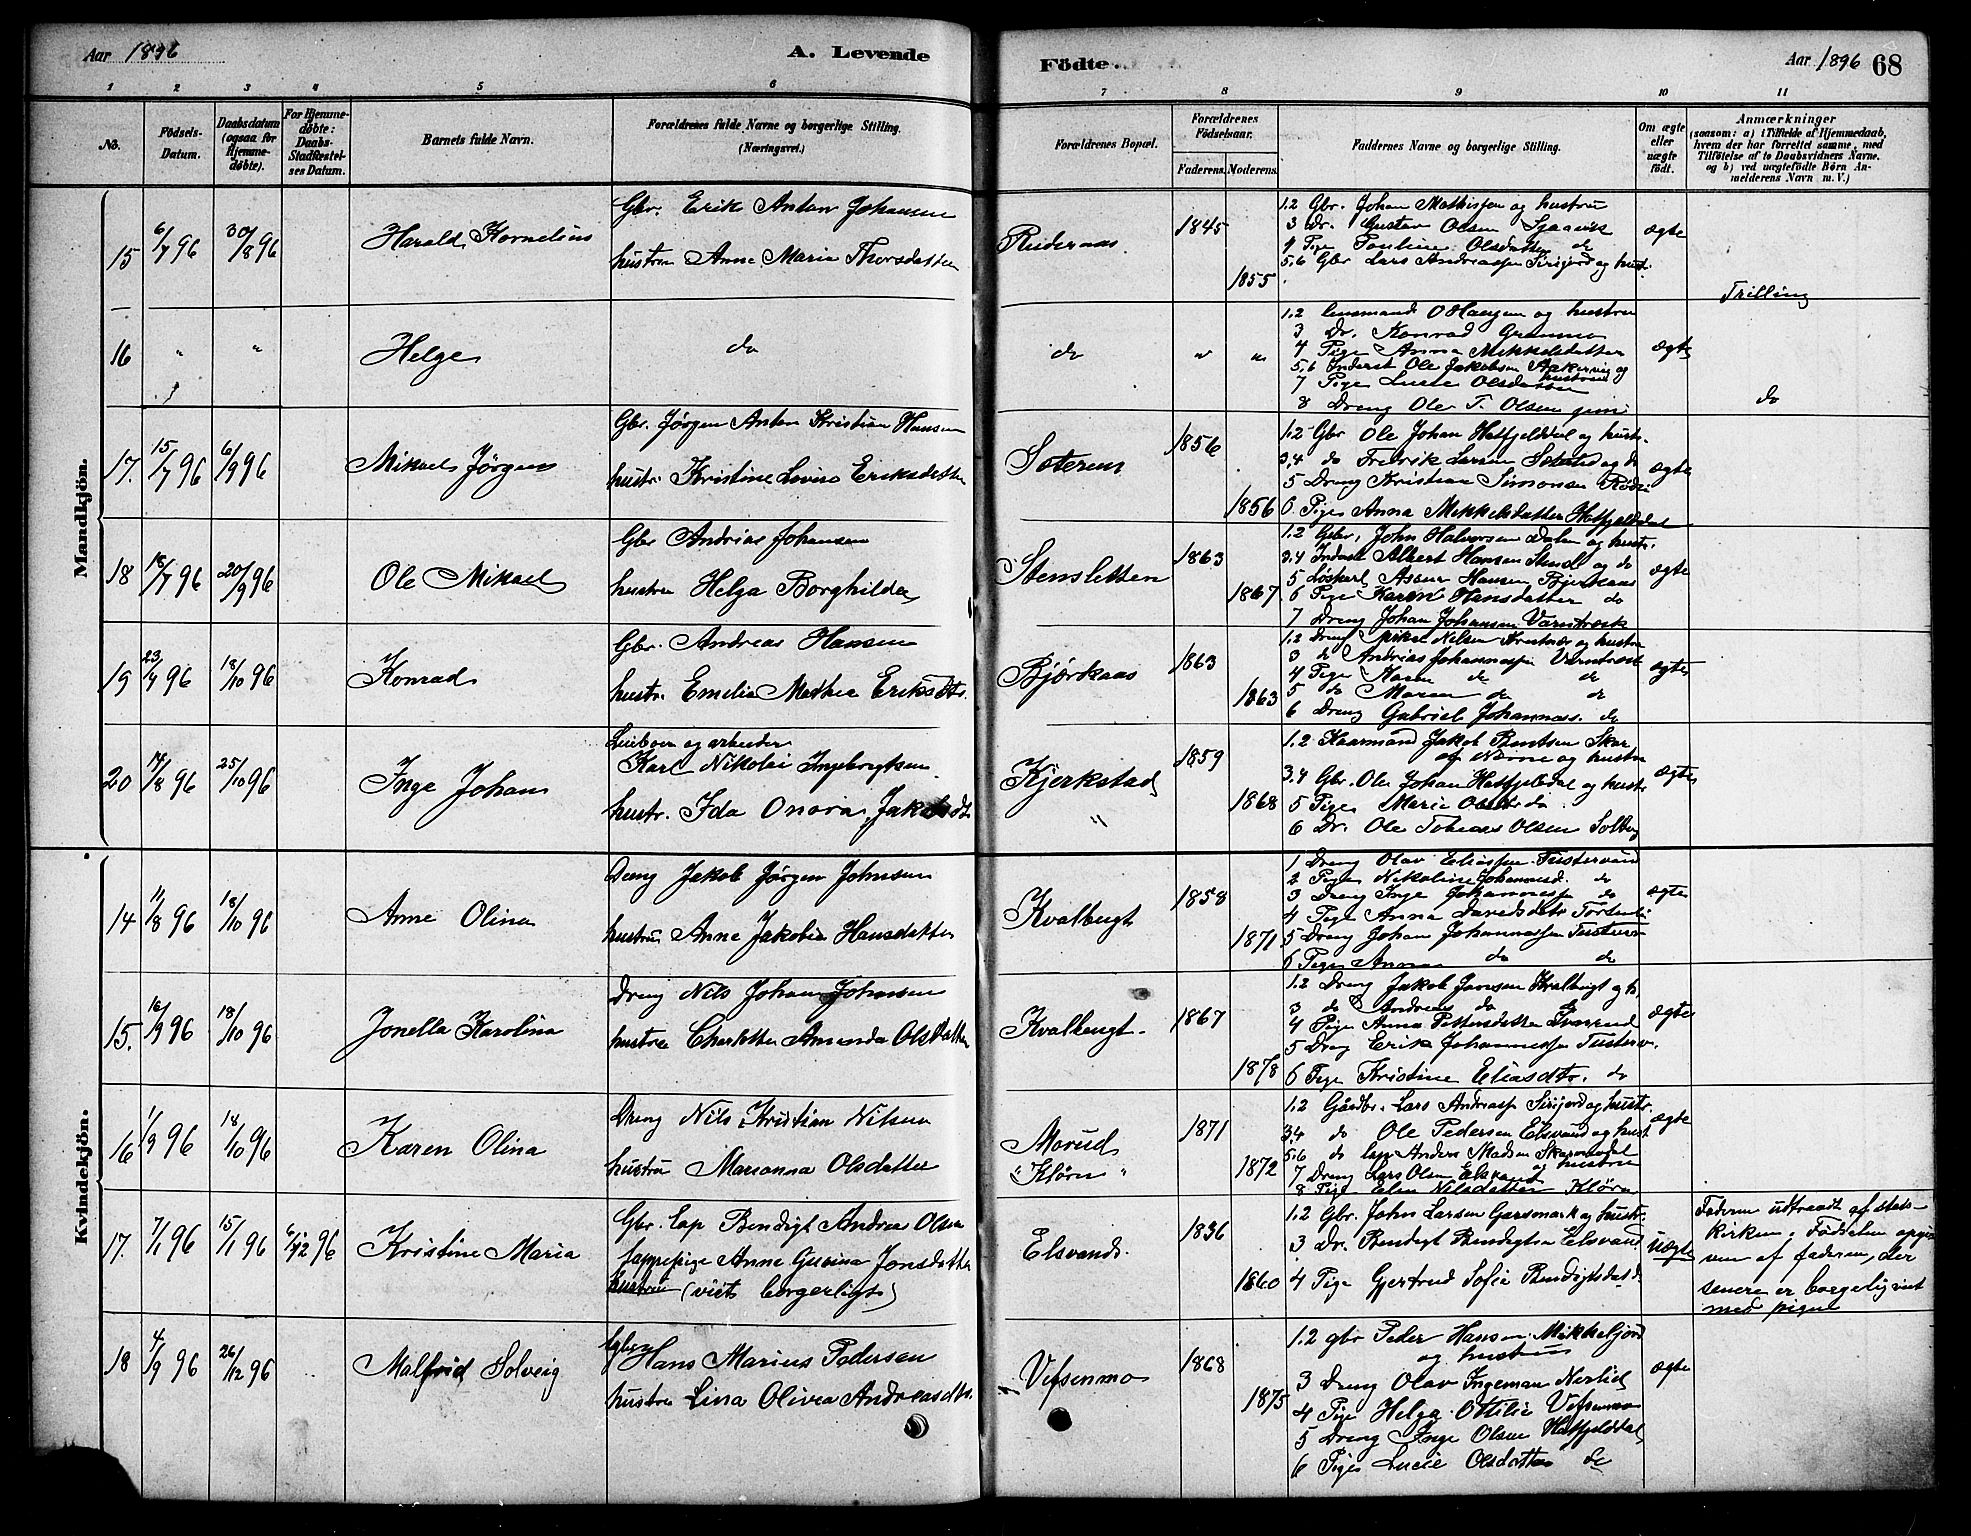 Aar 1896
A. Levende
Födte.
Aar 1896 68
1 2 3 4 5 6 7 8 9 10 11
No.
Födsels-Datum.
Daabsdatum (ogsaa for Hjemme-døbte).
For Hjemme-døbte: Daabs-Stadfæstel-ses Datum.
Barnets fulde Navn.
Forældrenes fulde Navne og borgerlige Stilling.
(Næringsvei.)
Forældrenes Bopæl.
Forældrenes Födselsaar.
Faderens. Moderens.
Faddernes Navne og borgerlige Stilling.
Om ægte eller uægte födt.
Anmærkninger
(saasom: a) i Tilfælde af Hjemmedaab,
hvem der har forrettet samme, med
Tilföielse af to Daabsvidners Navne,
og b) ved uægtefödte Börn An-
melderens Navn m. V.)
Mandkjön.
15 6/7 96 30/8 96 Harald Kornelius
Gbr. Erik Anton Johansen
hustru Anne Maria Thorsdatter
1845 1855
1.2 Gbr. Johan Mathissen og hustru
3 Dr. Gustav Olsen
4 Pige Pauline Olsdatter do
5,6 Gbr Lars Andreassen Sirijord og hust.
ægte
Trilling
16 " " Helge
do
do " "
1.2 Lensmand O Haugen og hustru
3 Dr. Konrad
4 Pige Anna Mikkelsdatter
5,6 Inderst Ole Jakobsen og hustru
7 Pige Lucie Olsdatter
8 Dreng Ole T. Olsen
ægte
do
17. 15/7 96 6/9 96 Mikael Jörgen
Gbr. Jörgen Anton Kristian Hansen
hustr. Kristine Lovise Eriksdatter
1856 1856
1.2 Gbr Ole Johan Hatfjelddal og hustr.
3.4 do Fredrik Larsen og do
5 Dreng Kristian Simonsen
6. Pige Anna Mikkelsdatter Hatfjelddal
ægte
18 18/7 96 20/9 96 Ole Mikael
Gbr Andrias Johansen
hustru Helga Borghilda
Stensletten
1863 1867
1.2 Gbr. John Halvorsen Dalen og hustr.
3.4 Albert Hansen og do
5 Hansen Bjørkaas
6 Pige Karen Hansdatter do
7 Dreng Johan Johansen Varntræsk
ægte
19 96 18/10 96 Konrad
Gbr. Andreas Hansen
hustr. Emelia Mathea Eriksdtr.
Bjørkaas
1863 1863
1.2 Dreng Mikal Nilsen og hustru
3 do Andrias Johannessen Varntræsk
4 Pige do do
5 do Maren do do
6 Dreng Gabriel Johanness. do
ægte
20 14/8 96 25/10 96 Inge Johan
og arbeider
Karl Nikolai Ingebrigtsen
hustr. Ida Onora Jakobsdtr
Kjerkstad
"
1859 1868
1.2 Kaarmand Jakob Bentsen
og hustru
3.4 Gbr. Ole Johan Hatfjelddal og hustr
5 Pige Marie Olsdtr do.
6 Dr. Ole Tobias Olsen Solberg
ægte
Kvindekjön.
14 11/8 96 18/10 96 Anne Olina
Dreng Jakob Jörgen Johnsen
hustru Anne Jakobia Hansdatter
Kvalbugt
1858 1871
1 Dreng Olav Eliassen Tustervand
2 Pige Nikoline Johannesd. do
3 Dreng Inge Johannessen do
4 Pige Anna Davidsdatr
5 Dreng Johan Johannessen Tusterv
6 Pige Anna do do
ægte
15. 16/9 96 18/10 96 Jonella Karolina
Dreng Nils Johan Johansen
hustru Charlotte Amanda Olsdatter
Kvalbugt.
1867 1878
1.2 Dreng Jakob Jonsen Kvalbugt og h.
3 do Andreas do
4 Pige Anna Pettersdatter
5 Dreng Erik Johannessen Tusterv.
6 Pige Kristine Eliasdtr. do
ægte
16 1/9 96 18/10 96 Karen Olina
Dreng Nils Kristian Nilsen
hustru Marianna Olsdatter
Morud
"Klöru"
1871 1872
1.2 Gårdbr. Lars Andreass Sirijord og hustr.
3.4 do Ole Pedersen Elsvand og hust
5.6 do Lap Anders Madsen og hustru
7 Dreng Lars Olsen Elsvand
8 Pige Elen Nilsdatter Klöru
ægte
17. 7/1 96 15/1 96 6/12 96 Kristine Maria
Gbr. Lap Bendigt Andreas Olsen
Lappepige Anne Gurina Jonsdatter
hustru (viet borgerligt)
Elsvand.
1836 1860
1.2 Gbr. John Larsen Garsmark og hustr.
3 Dr. Bendigt Bendigtsen Elsvand
4 Pige Gjertrud Sofie Bendigtsdat do
uægte
Faderen udtraadt af stats-
kirken; Födselen opgi-
ven af faderen, der
senere er borgelig viet
med pigen
18 4/9 96 26/12 96 Malfrid Solveig
Hans Marius Pedersen
hustru Lina Olivia Andreasdtr.
Vefsenmo
1868 1875
1.2 gbr Peder Hansen Mikkeljord
og hustru
3 Dreng Olav Ingeman Nerlid
4 Pige Helga Ottilie Vefsenmo
5 Dreng Inge Olsen Hatfjelddal
6 Pige Lucie Olsdatter do
ægte